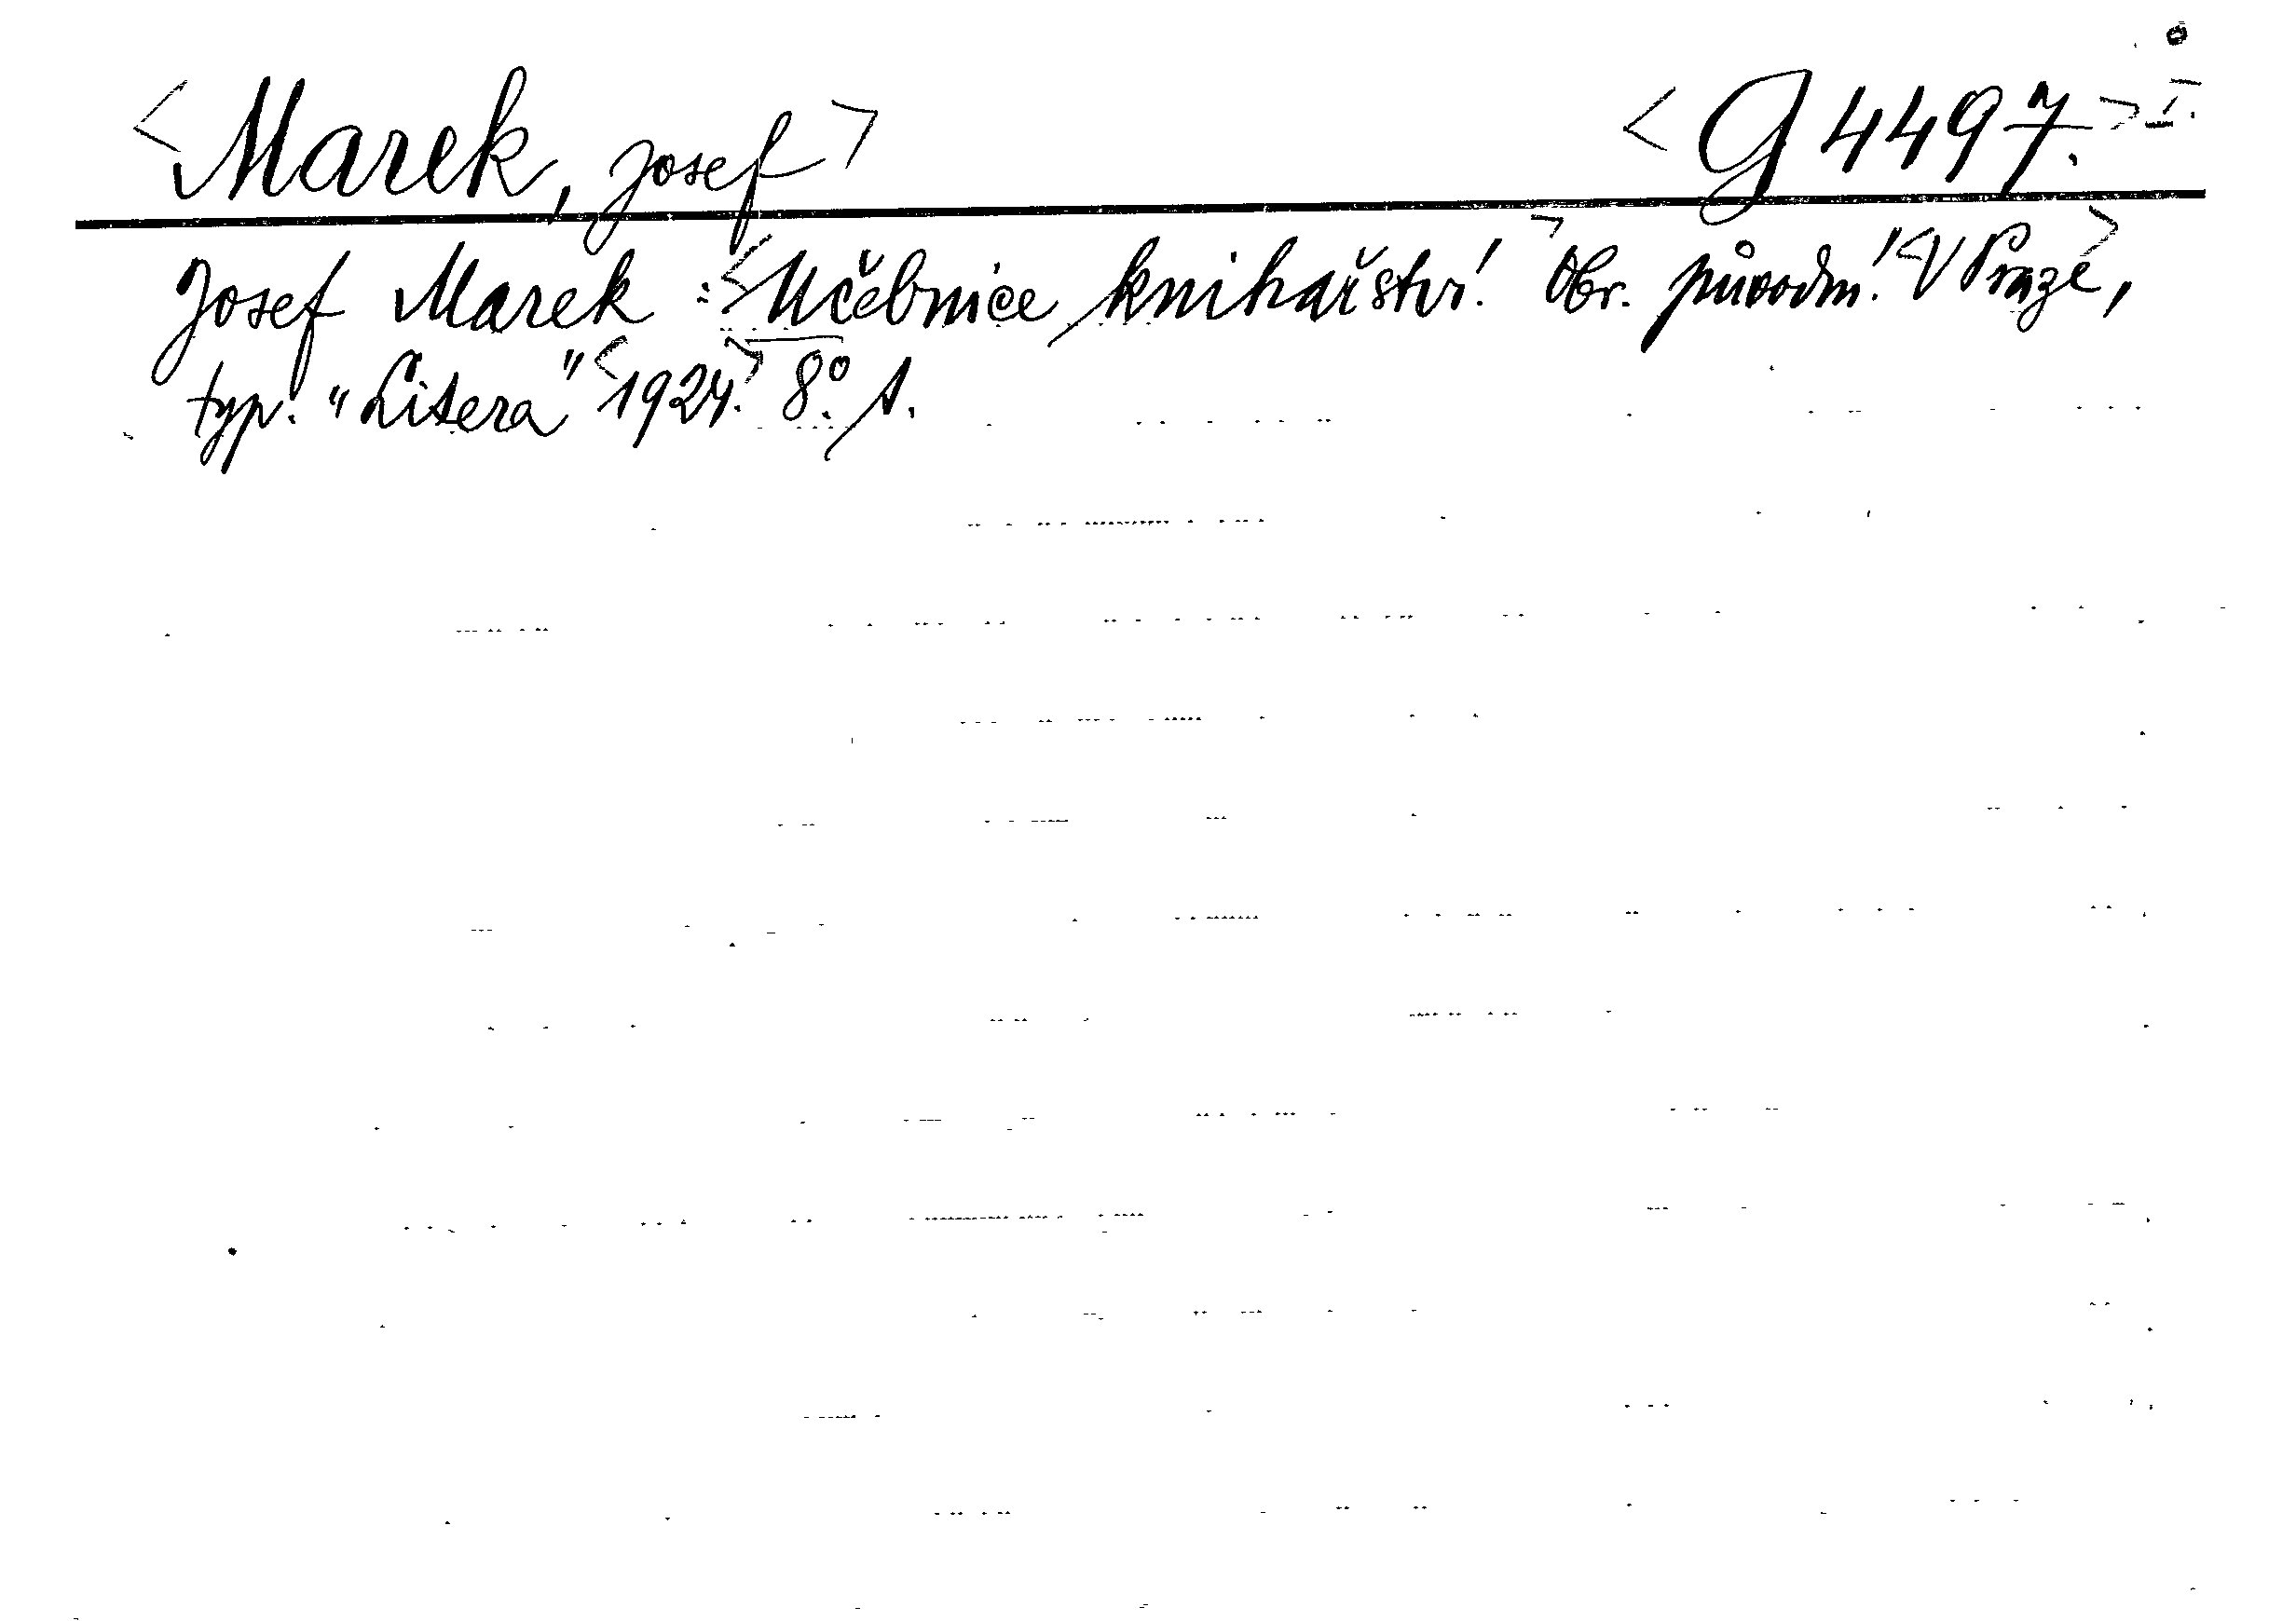 <Marek, Josef> <G 4497.> I.
Josef Marek : <Učebnice knihařství.> Obr. původní. <V Praze>,
typ. "Litera" <1924.> 8º. 1.